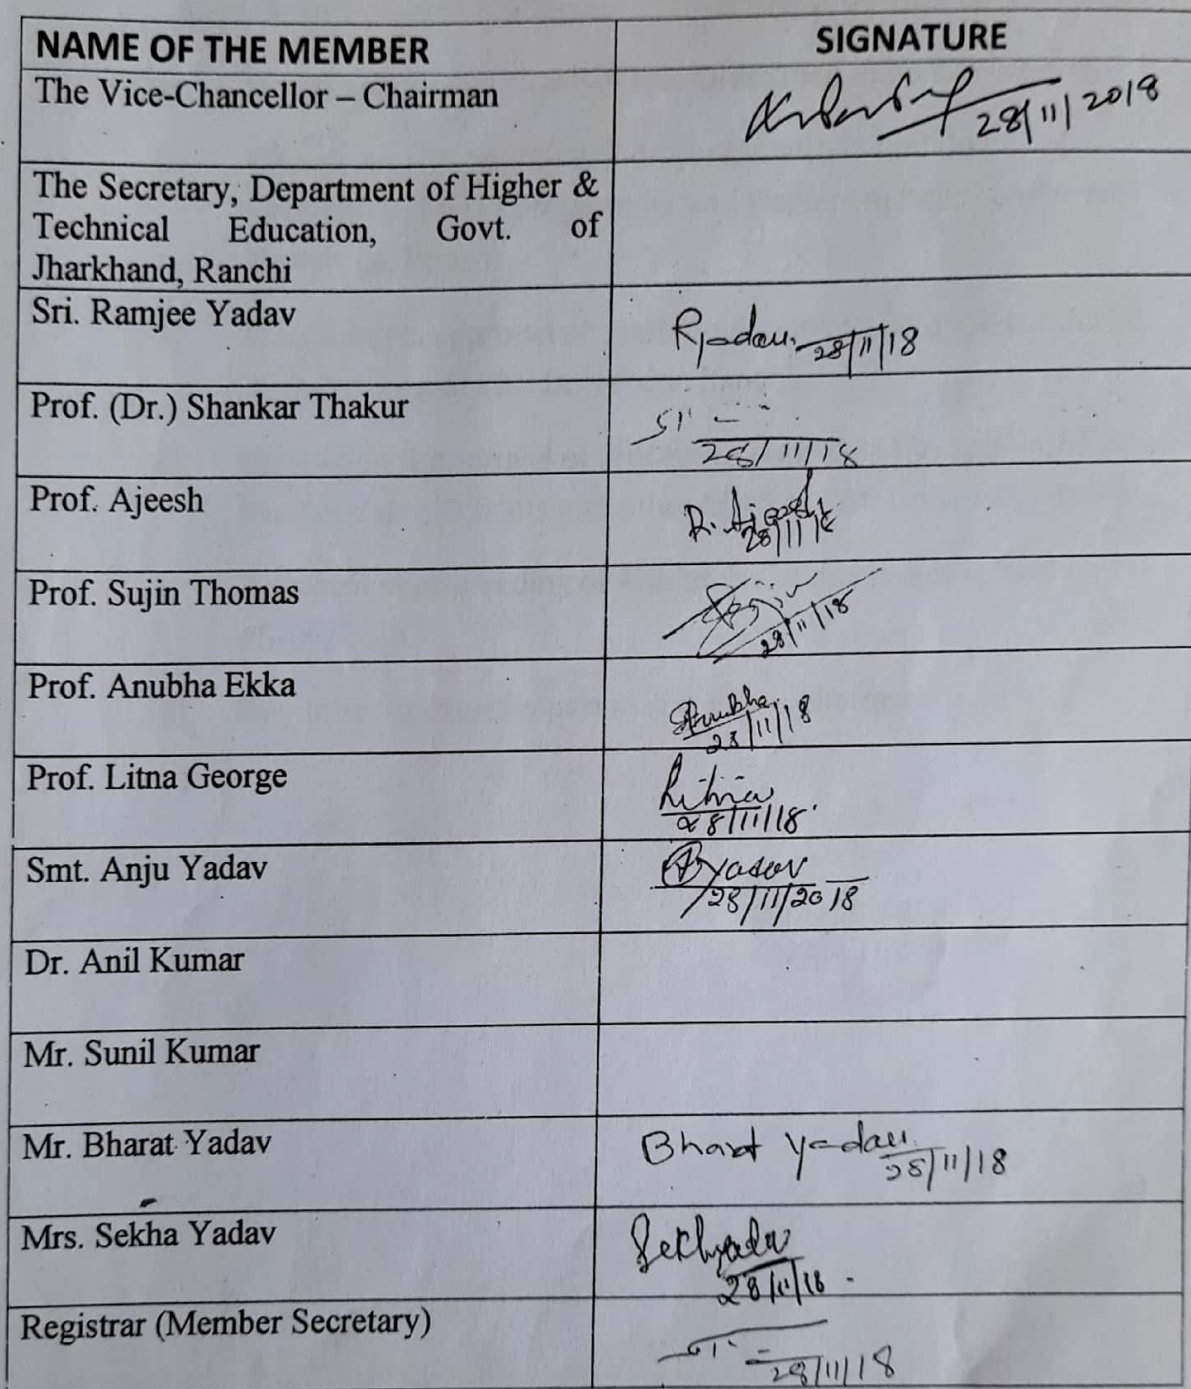 NAME OF THE MEMBER SIGNATURE
The Vice-Chancellor – Chairman
28/11/2018
The Secretary, Department of Higher &
Technical Education, Govt. of
Jharkhand, Ranchi
Sri. Ramjee Yadav
Ryadav. 28/11/18
Prof. (Dr.) Shankar Thakur
28/11/18
Prof. Ajeesh
R. Ajeesh
28/11/18
Prof. Sujin Thomas
28/11/18
Prof. Anubha Ekka
Anubha
28/11/18
Prof. Litna George
Litna
28/11/18
Smt. Anju Yadav
A Yadav
28/11/2018
Dr. Anil Kumar
Mr. Sunil Kumar
Mr. Bharat Yadav
Bharat Yadav
28/11/18
Mrs. Sekha Yadav
28/11/18
Registrar (Member Secretary)
28/11/18